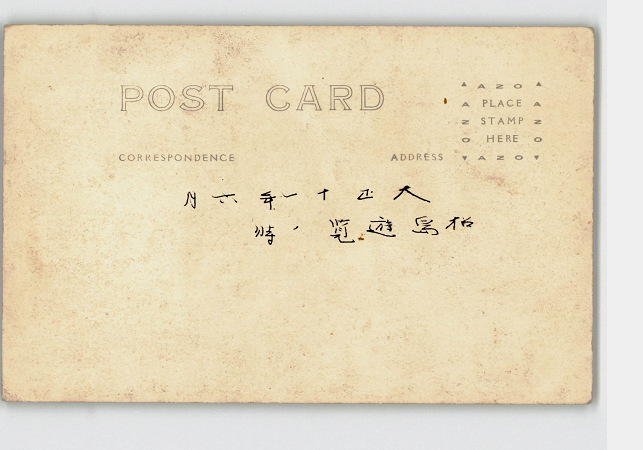 POST CARD
CORRESPONDENCE
ADDRESS
AZO
PLACE
STAMP
HERE
AZO
AZO
AZO
大正十一年六月
松島遊覧ノ時